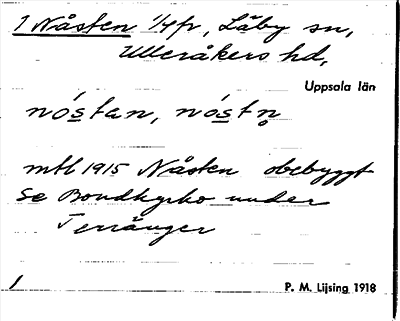 1 Nåsten 1/4 fr, Läby sn,
Ulleråkers hd,
Uppsala län
nóstan, nóstn̥
mtl 1915 Nåsten obebyggt
se Bondkyrko under
Terränger
1
P. M. Lijsing 1918